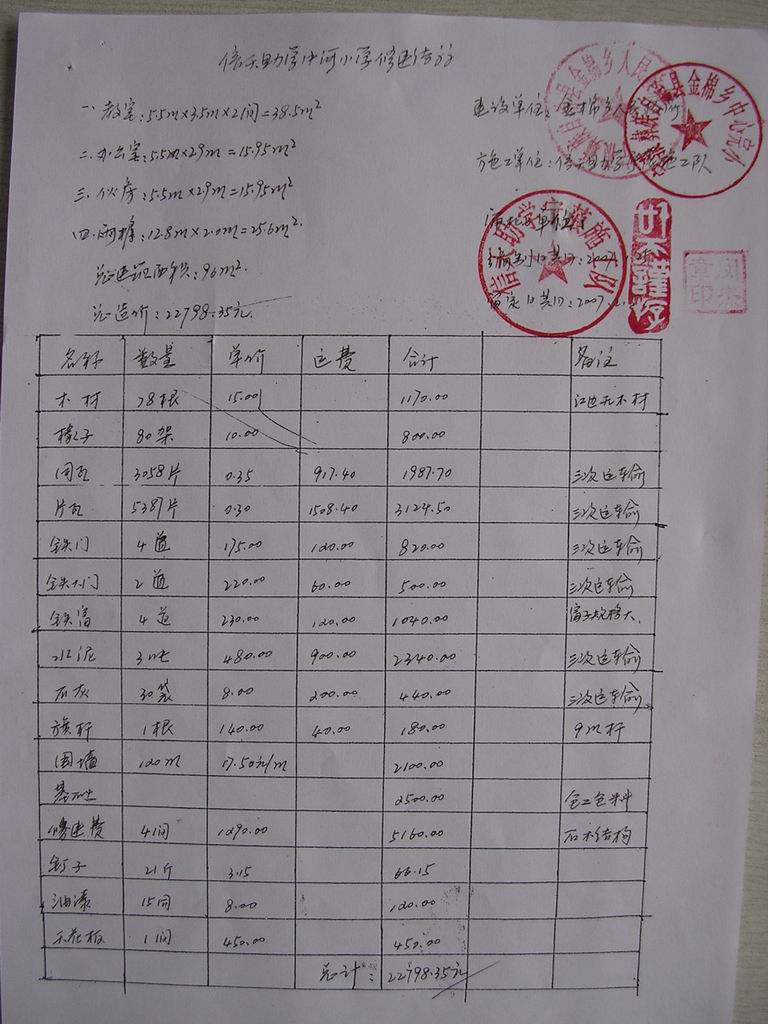 信天助学中河小学修建结算
一.教室:5.5m×3.5m×2间=38.5m²
二.办公室:5.5m×2.9m=15.95m²
三.伙房:5.5m×2.9m=15.95m²
四.雨棚:12.8m×2.0m=25.6m²
总建筑面积:96m².
总造价:22798.35元.
建设单位:金棉乡人民政府
施工单位:信天助学 施工队
名称 数量 单价 运费 合计 备注
木材 78根 15.00 1170.00 江边无木材
椽子 80架 10.00 800.00
同瓦 3058片 0.35 917.40 1987.70 三次运输
片瓦 5387片 0.30 1508.40 3124.50 三次运输
铁门 4道 175.00 120.00 820.00 三次运输
铁大门 2道 220.00 60.00 500.00 三次运输
铁窗 4道 230.00 120.00 1040.00 窗子规格大.
水泥 3吨 480.00 900.00 2340.00 三次运输
石灰 30袋 8.00 200.00 440.00 三次运输
旗杆 1根 140.00 40.00 180.00 9m杆
围墙 120m 17.50元/m 2100.00
基础 2500.00 包工包料
修建费 4间 1290.00 5160.00 石木结构
钉子 21斤 3.15 66.15
油漆 15同 8.00 120.00
天花板 1间 450.00 450.00
总计: 22798.35元